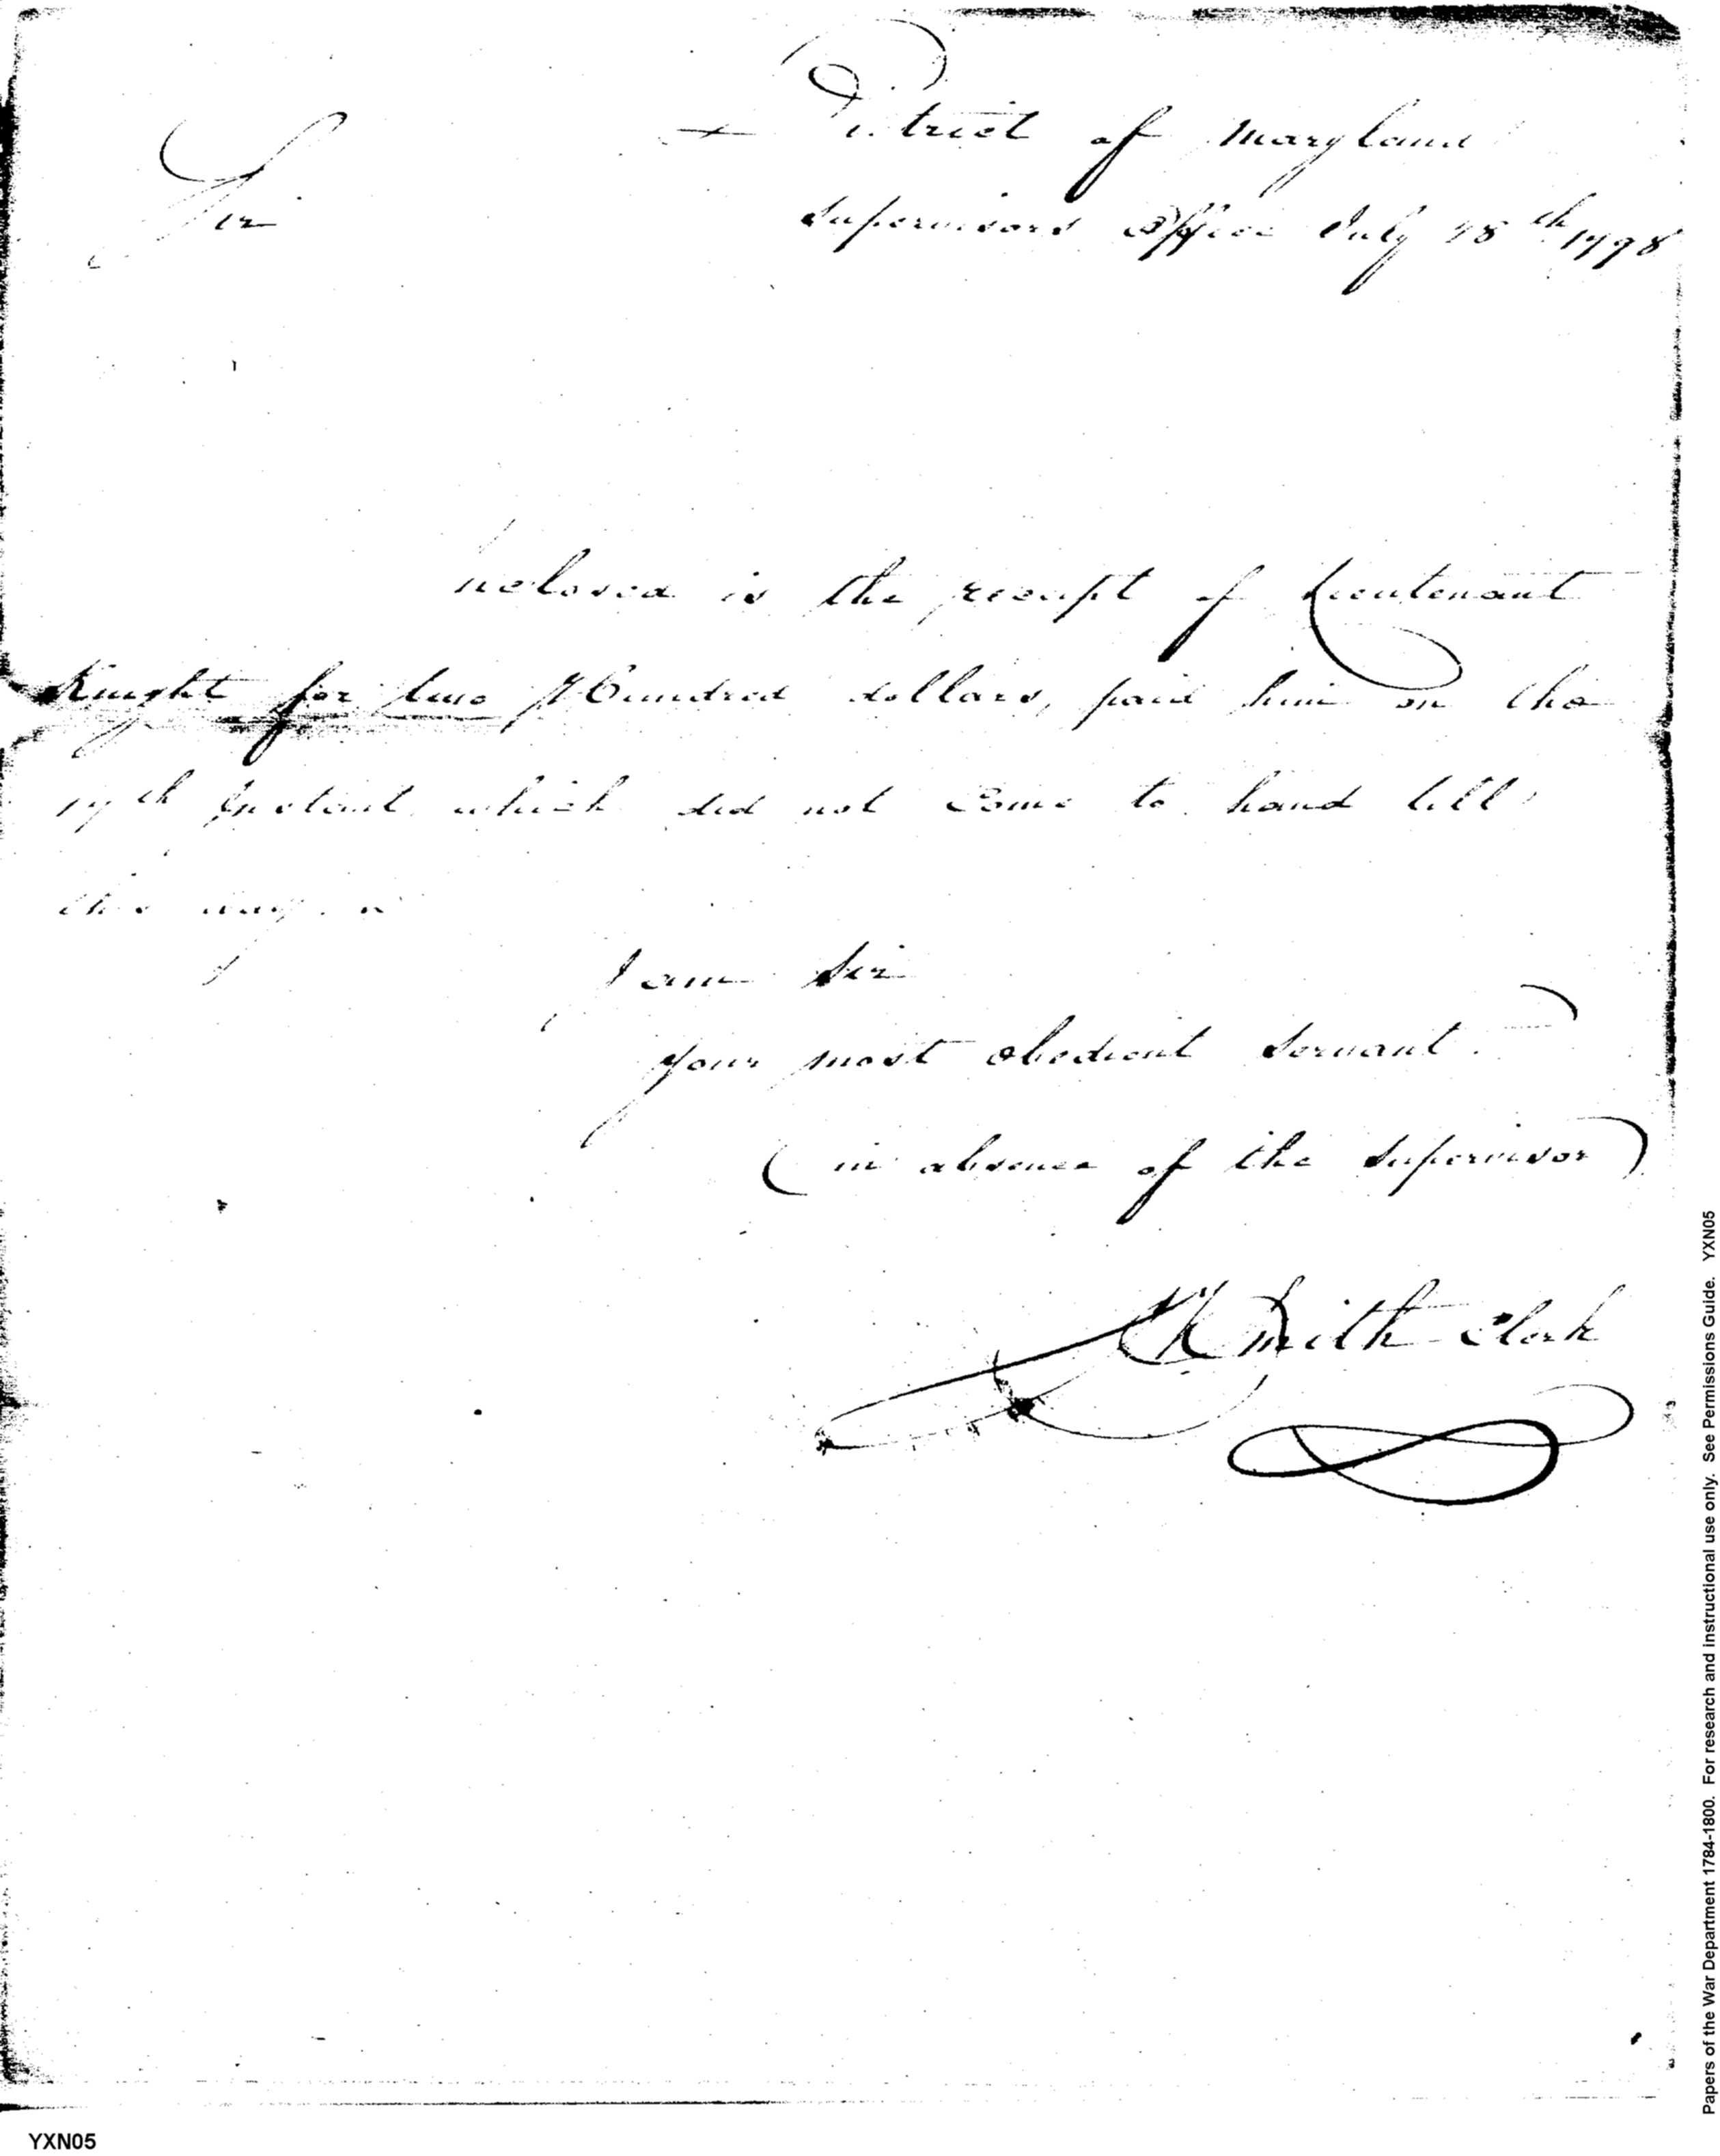 District of Maryland
Supervisors Office July 18th 1798
Sir
Inclosed is the receipt of Lieutenant
Knight for two Hundred dollars, paid him on the
17th Instant which did not Come to hand till
this
I am Sir
your most obedient Servant
(in absence of the Supervisor)
Smith Clerk
Papers of the War Department 1784-1800. For research and instructional use only. See Permissions Guide. YXN05
YXN05